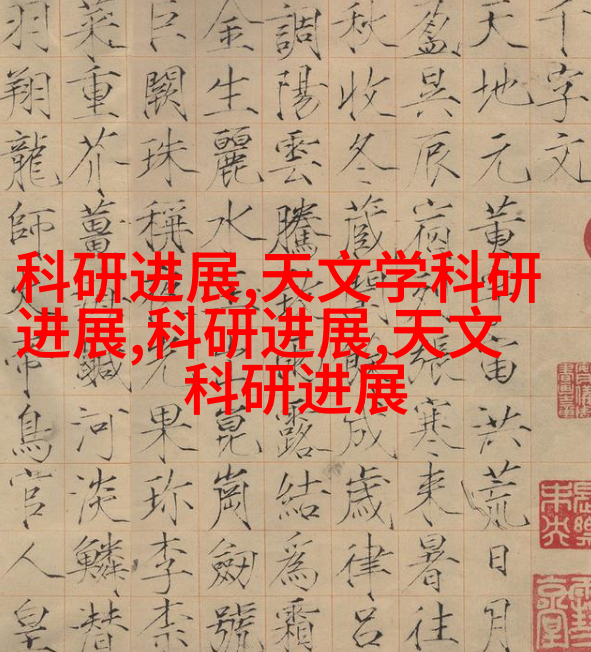 科研进展,天文学科研
进展,科研进展,天文
科研进展
千字文
天地元黃宙洪荒日月
盈昃辰宿張寒来暑往
秋收冬蔵成歳律呂
調陽雲騰露結爲霜
金生麗水出崑崗劒號
巨闕珠稱光果珍李柰
菜重芥薑鹹河淡鱗潛
羽翔龍師火帝鳥官人皇